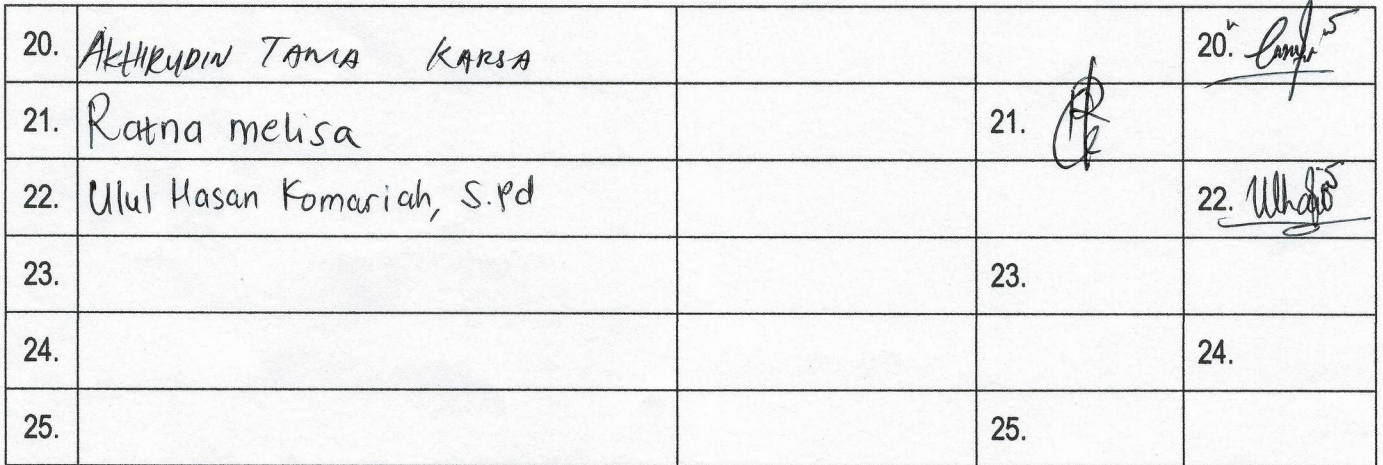 20. AKHIRUDIN TAMA KARSA 20.
21. Ratna melisa 21.
22. Ulul Hasan Komariah, S.Pd 22.
23. 23.
24. 24.
25. 25.